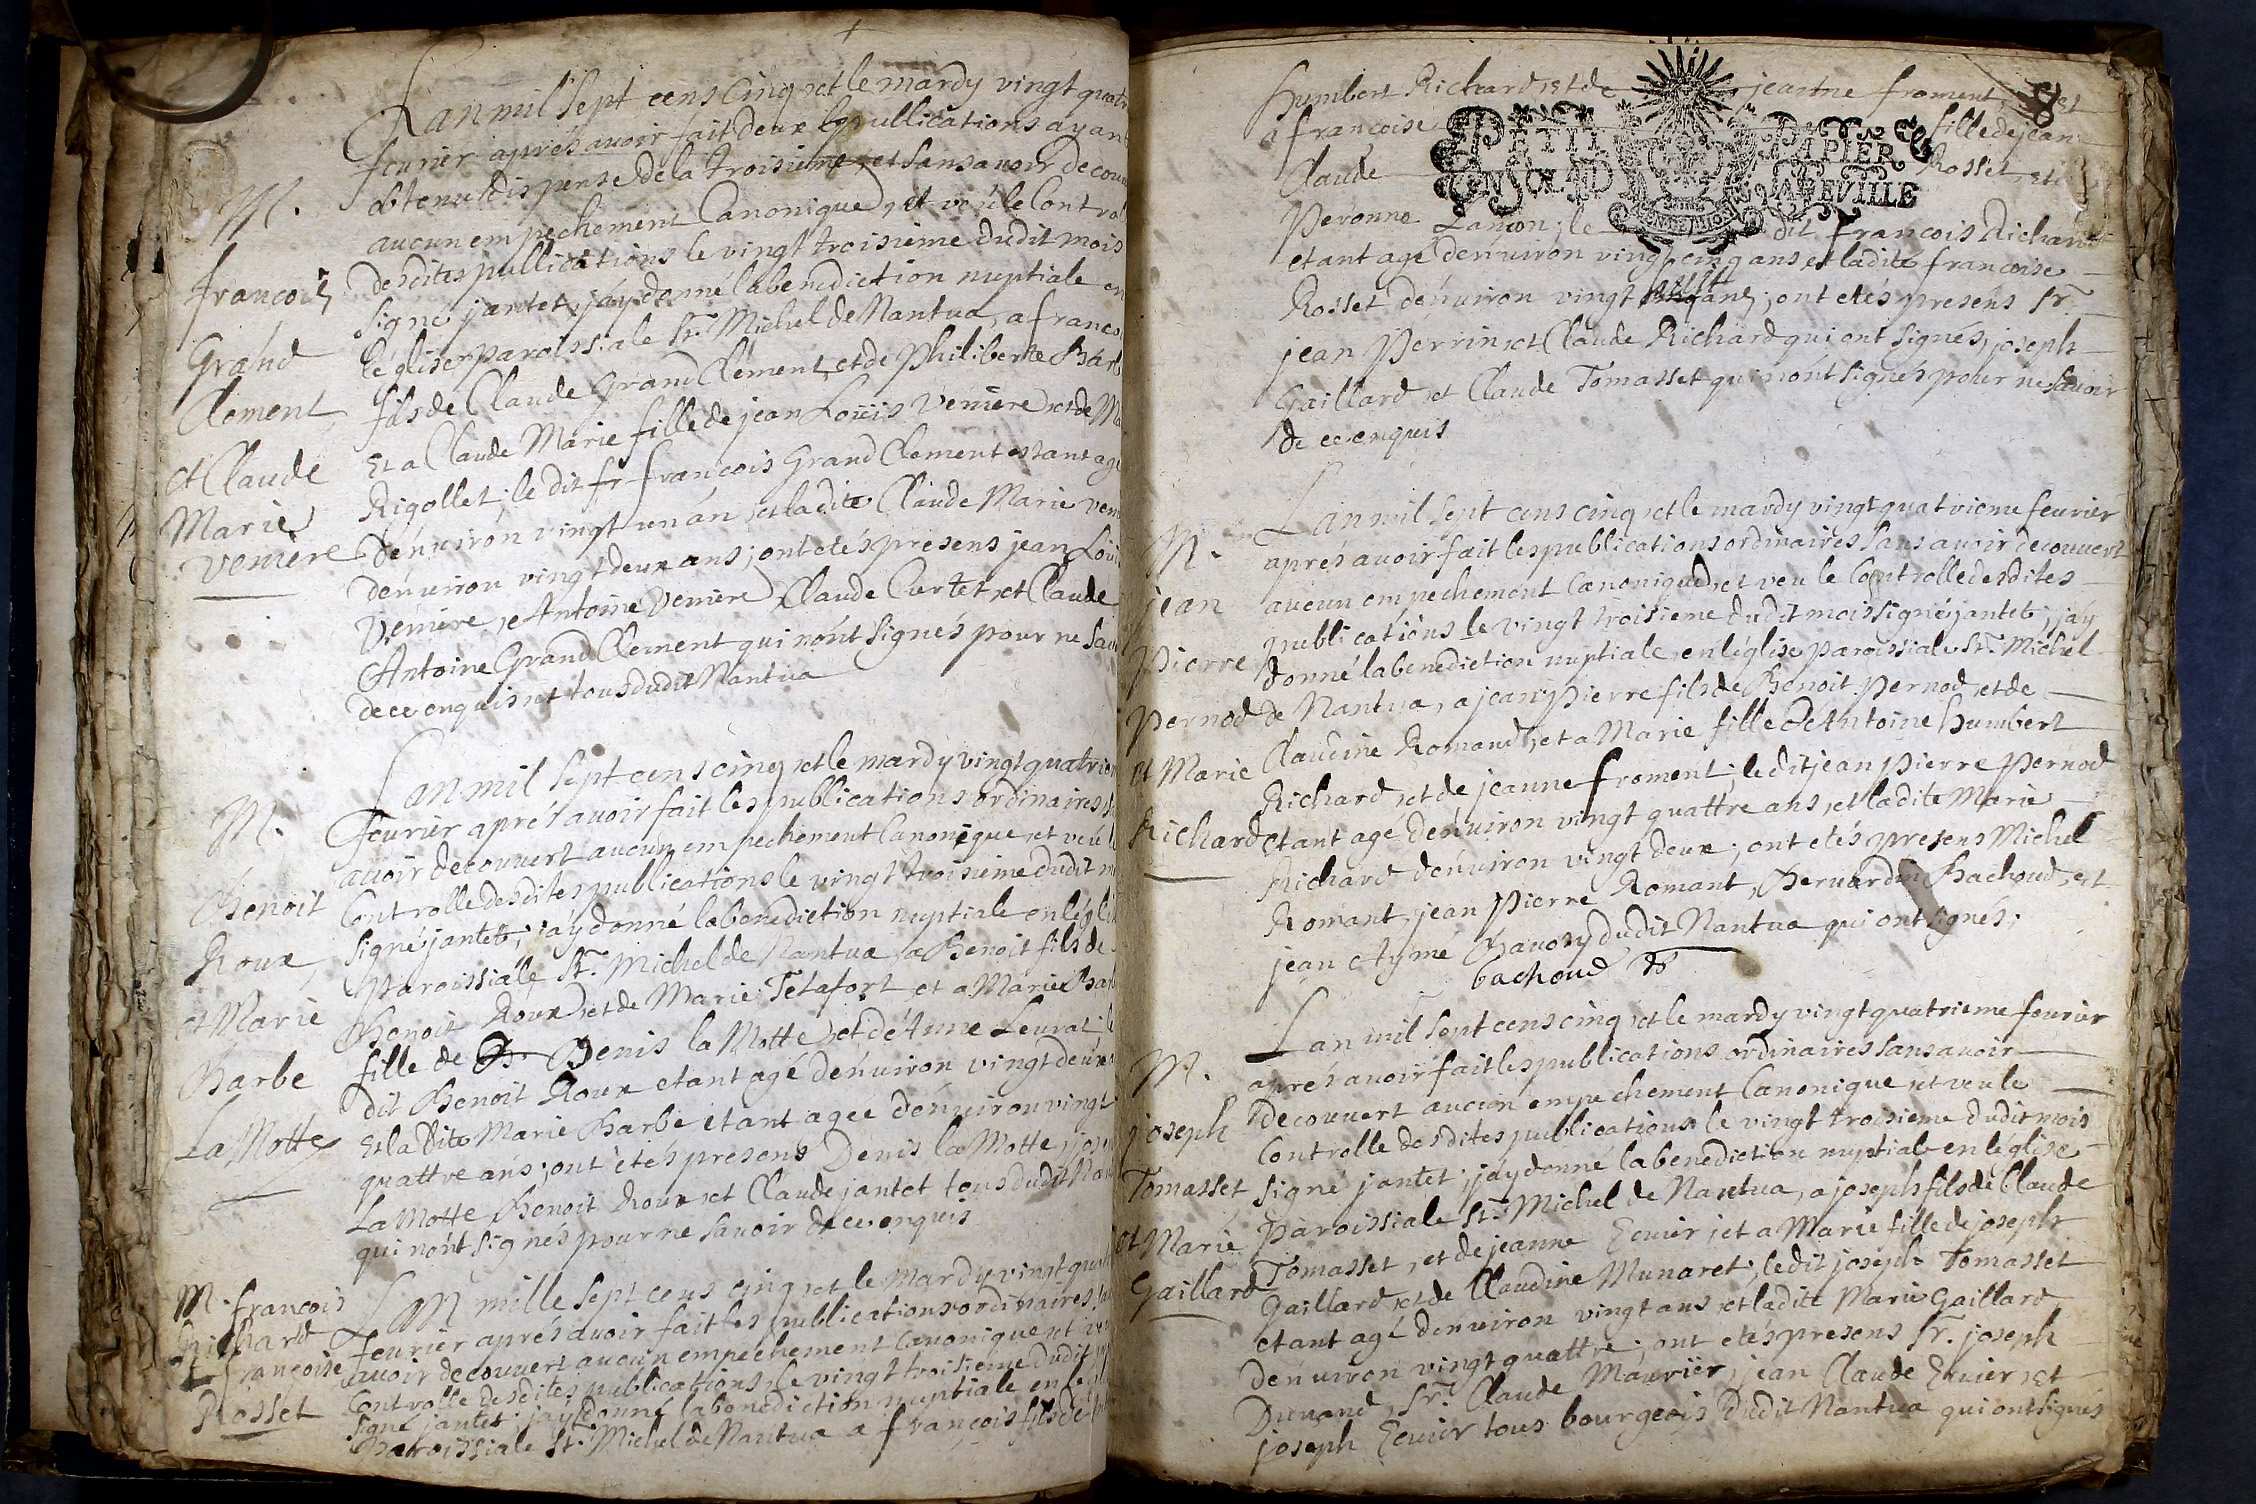 M.
françois
Grand
Clement
et Claude
Marie
veniere
Lan mil sept cens cinq et le mardy vingt quatr
feurier aprés auoir fait deux publications ayant
obtenu dispense de la troisieme et sans auoir decou
aucun empechement Canonique, et veü le Controlle
desdites publications le vingt troisieme dudit mois
signé jantet, jáy donné la benediction nuptiale en
léglise paroissiale St. Michel de Nantua, a franco
fils de Claude Grand Clement, et de Philiberte Barb
Et a Claude Marie fille de jean Loüis Veniere et de Ma
Rigollet; le dit fr françois Grand Clement estant agé
dénuirón vingt un an et ladite Claude Marie veni
dénuiron vingt deux ans; ont etés presens jean Loüi
Veniere, Antoine Veniere, Claude Curtet, et Claude
Antoine Grand Clement qui nónt signés pour ne sau
de ce enquis et tous dudit Nantua
M.
Benoit
Roux,
et Marie
Barbe
La Motte
Lan mil sept cens cinq et le mardy vingt quatrie
feurier aprés auoir fait les publications ordinaires s
auoir decouuert aucun empechement Canonique, et veü l
Controlle desdites publications le vingt troisieme dudit m
signé jantet; jáy donné la benediction nuptiale en léglis
paroissiale St. Michel de Nantua, a Benoit fils de
Benoit Roux, et de Marie Tetafort et a Marie Barb
fille de Denis la Motte, et de Anne Leurat; le
dit Benoit Roux etant agé dénuiron vingt deux
Et la dite Marie Barbe etant agee dénuiron vingt
quattre ans; ont étés presens Denis la Motte, jose
La Motte Benoit Roux et Claude jantet tous dudit Nan
qui nónt signés pour ne sauoir de ce enquis
M. françois
Richard
et françoise
Rosset
Lan mille sept cens cinq et le mardy vingt quatr
feurier aprés auoir fait les publications ordinaires, sa
auoir decouuert aucun empechement canonique et ve
Controlle desdites publications, le vingt troisieme dudit
signé jantet; jáy donné la benediction nuptiale en le
Paroissiale St. Michel de Nantua a françois fils de
8
Humbert Richard et de jeanne froment, et
a francoise fille de jean
Claude Rosset, et
Peronne Lançon; le dit françois Richard
etant agé dénuiron vingt cinq ans et ladite francoise
Rosset dénuiron vingt ans; ont etés presens Sr.
jean Perrin, et Claude Richard qui ont signés, joseph
Gaillard et Claude Tomasset qui nónt signés pour ne sauoir
de ce enquis
PETIT PAPIER
UN SOL
LA FEUILLE
M.
jean
pierre
pernod
et Marie
Richard
Lan mil sept cens cinq et le mardy vingt quatrieme feurier
aprés auoir fait les publications ordinaires sans auoir decouuert
aucun empechement canonique, et veu le Controlle desdites
publications le vingt troisieme dudit mois signé jantet; jáy
donné la benediction nuptiale, en léglise paroissiale St. Michel
de Nantua, a jean pierre fils de Benoit pernod, et de
Claudine Romand, et a Marie fille de Antoine humbert
Richard, et de jeanne froment; le dit jean pierre pernod
etant agé dénuiron vingt quattre ans, et ladite Marie
Richard dénuiron vingt deux; ont etés presens Michel
Romant, jean pierre Romant, Bernardin Bachoud, et
jean Aymé Bauory dudit Nantua qui ont signés;
bachoud
M.
joseph
Tomasset
et Marie
Gaillard
Lan mil sept cens cinq et le mardy vingt quatrieme feurier
aprés auoir fait les publications ordinaires sans auoir
decouuert aucun empechement Canonique et veu le
Controlle desdites publications le vingt troisieme dudit mois
signé jantet; jáy donné la benediction nuptiale en léglise
paroissiale St. Michel de Nantua, a joseph fils de Claude
Tomasset, et de jeanne Ecuier, et a Marie fille de joseph
Gaillard, et de Claudine Munaret; le dit joseph Tomasset
etant agé dénuiron vingt ans et ladite Marie Gaillard
dénuiron vingt quattre; ont etés presens Sr. joseph
Durand, Sr. Claude Maurier, jean Claude Ecuier, et
joseph Ecuier tous bourgeois dudit Nantua qui ont signés